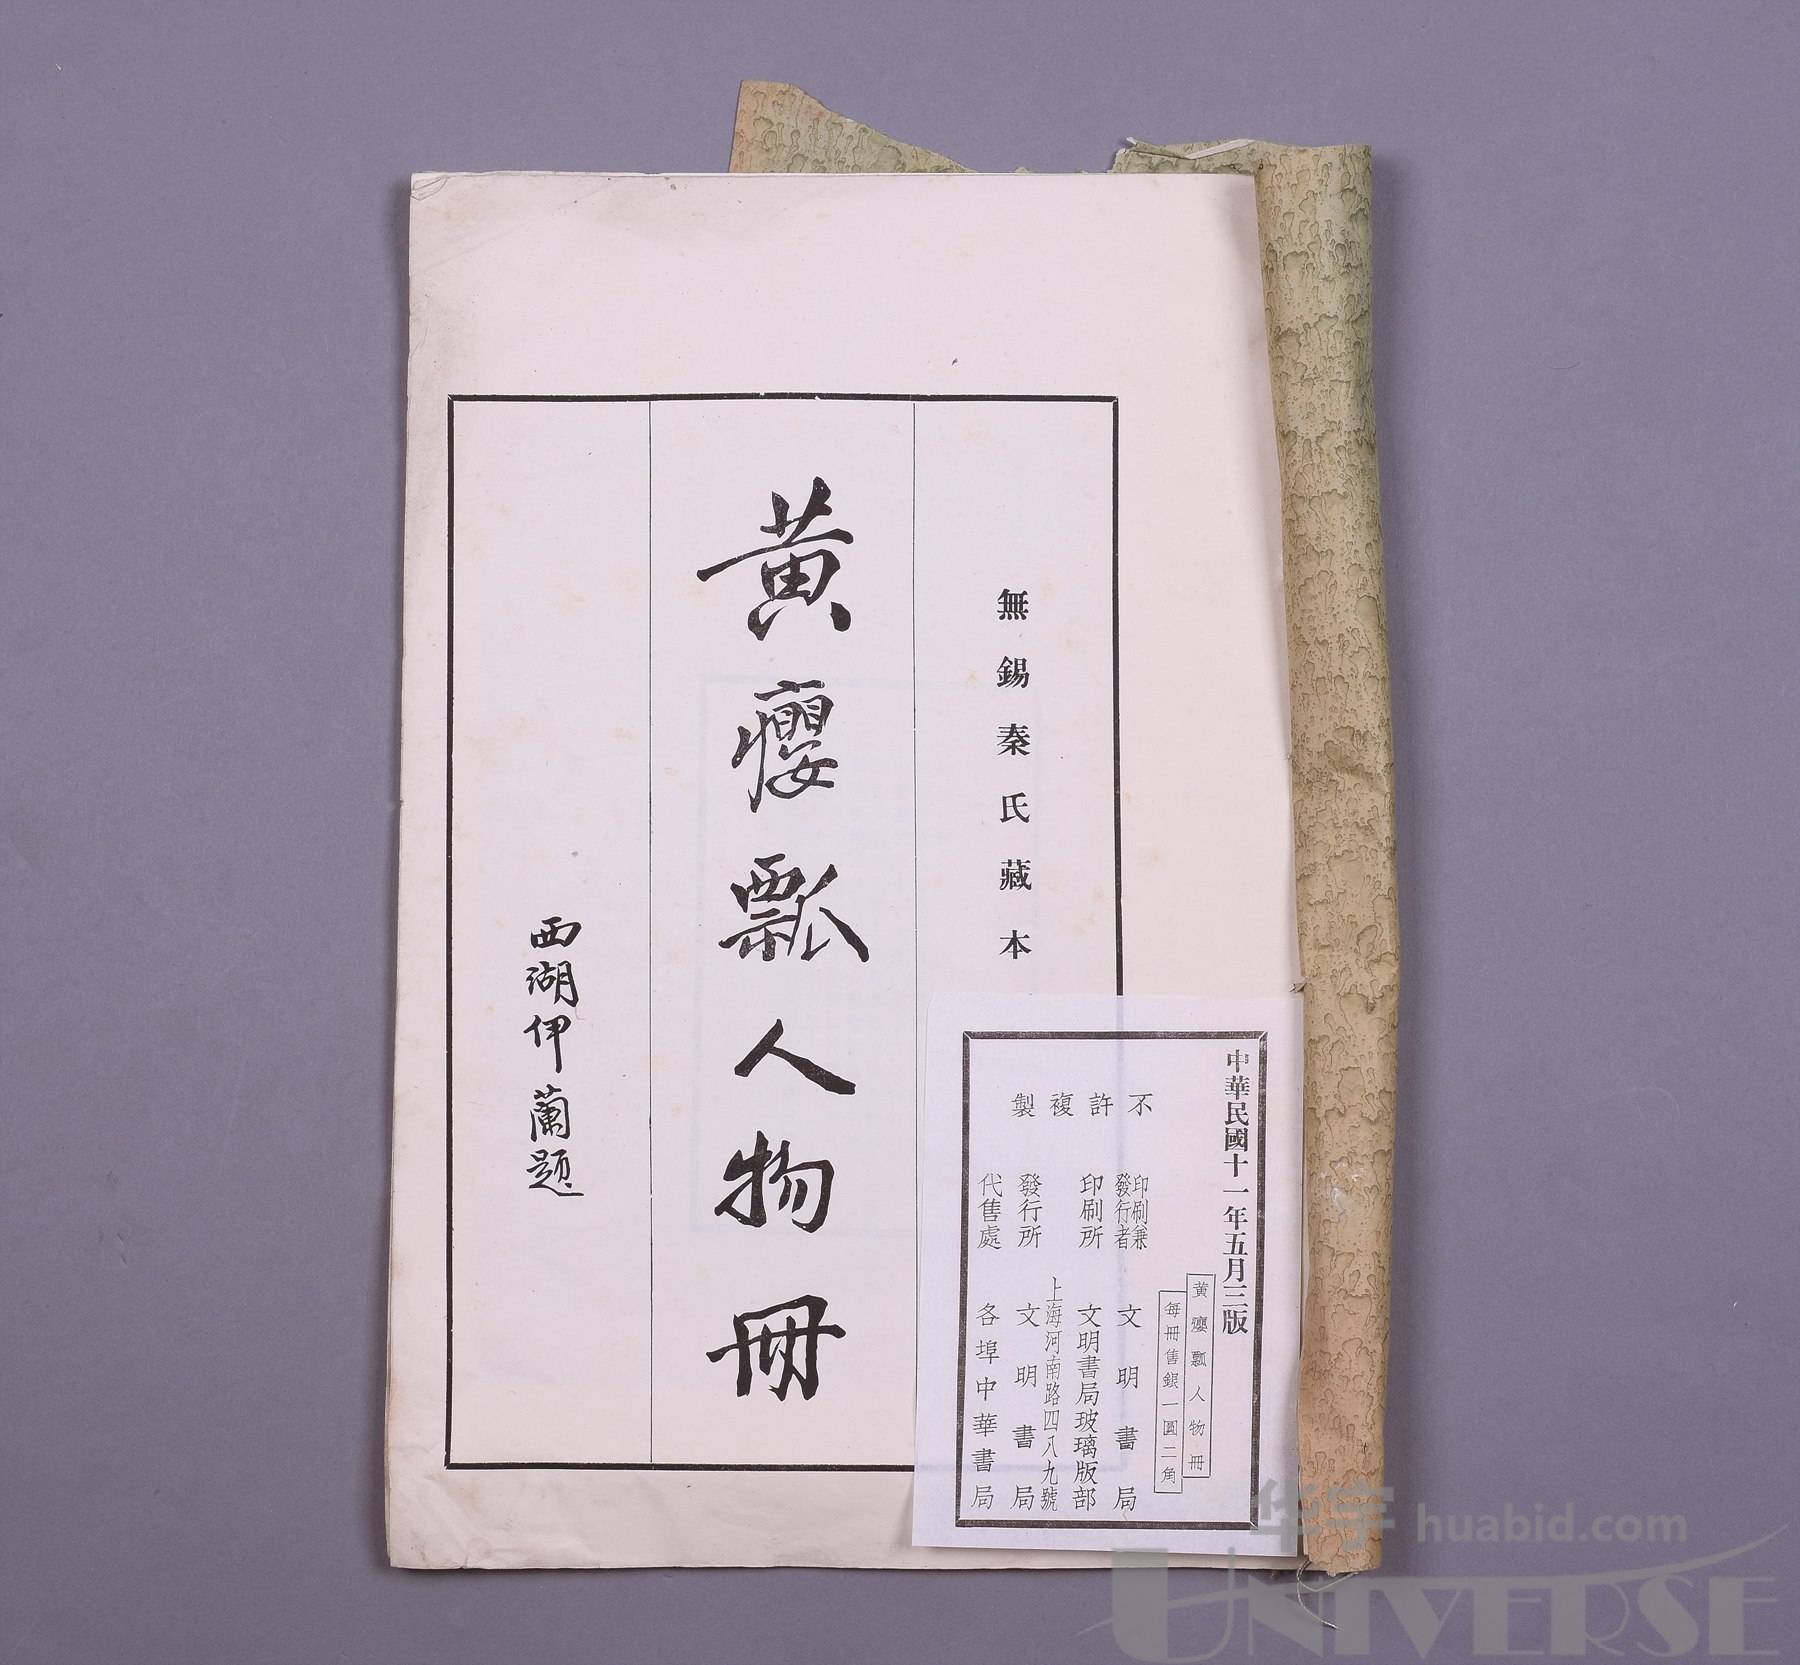 無錫秦氏藏本
黃癭瓢人物冊
西湖伊蘭題
中華民國十一年五月三版
黃癭瓢人物冊
每冊售銀一圓二角
不許複製
印刷兼發行者 文明書局
印刷所 文明書局玻璃版部
上海河南路四八九號
發行所 文明書局
代售處 各埠中華書局
华宇 huabid.com
UNIVERSE